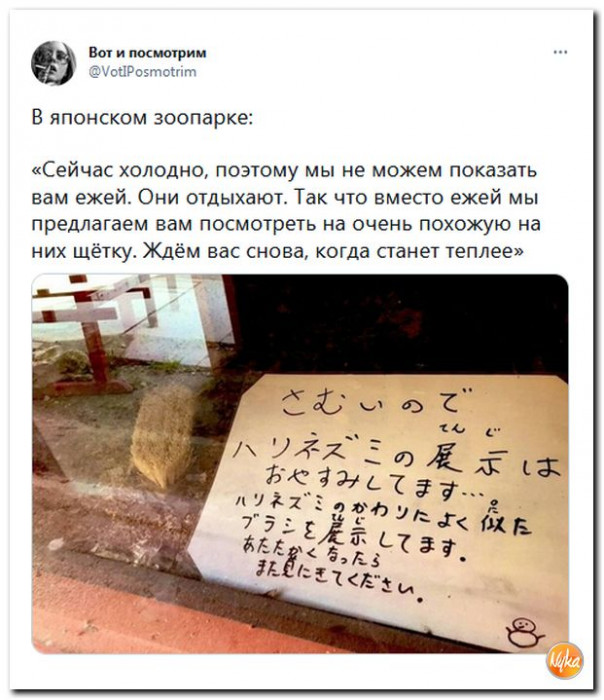 Вот и посмотрим
@VotIPosmotrim
В японском зоопарке:
«Сейчас холодно, поэтому мы не можем показать
вам ежей. Они отдыхают. Так что вместо ежей мы
предлагаем вам посмотреть на очень похожую на
них щётку. Ждём вас снова, когда станет теплее»
さむいので
てんじ
ハリネズミの展示は
おやすみしてます…
に
ハリネズミのかわりによく似た
てんじ
ブラシを展示してます。
あたたかくなったら
また見にきてください。
Nyka